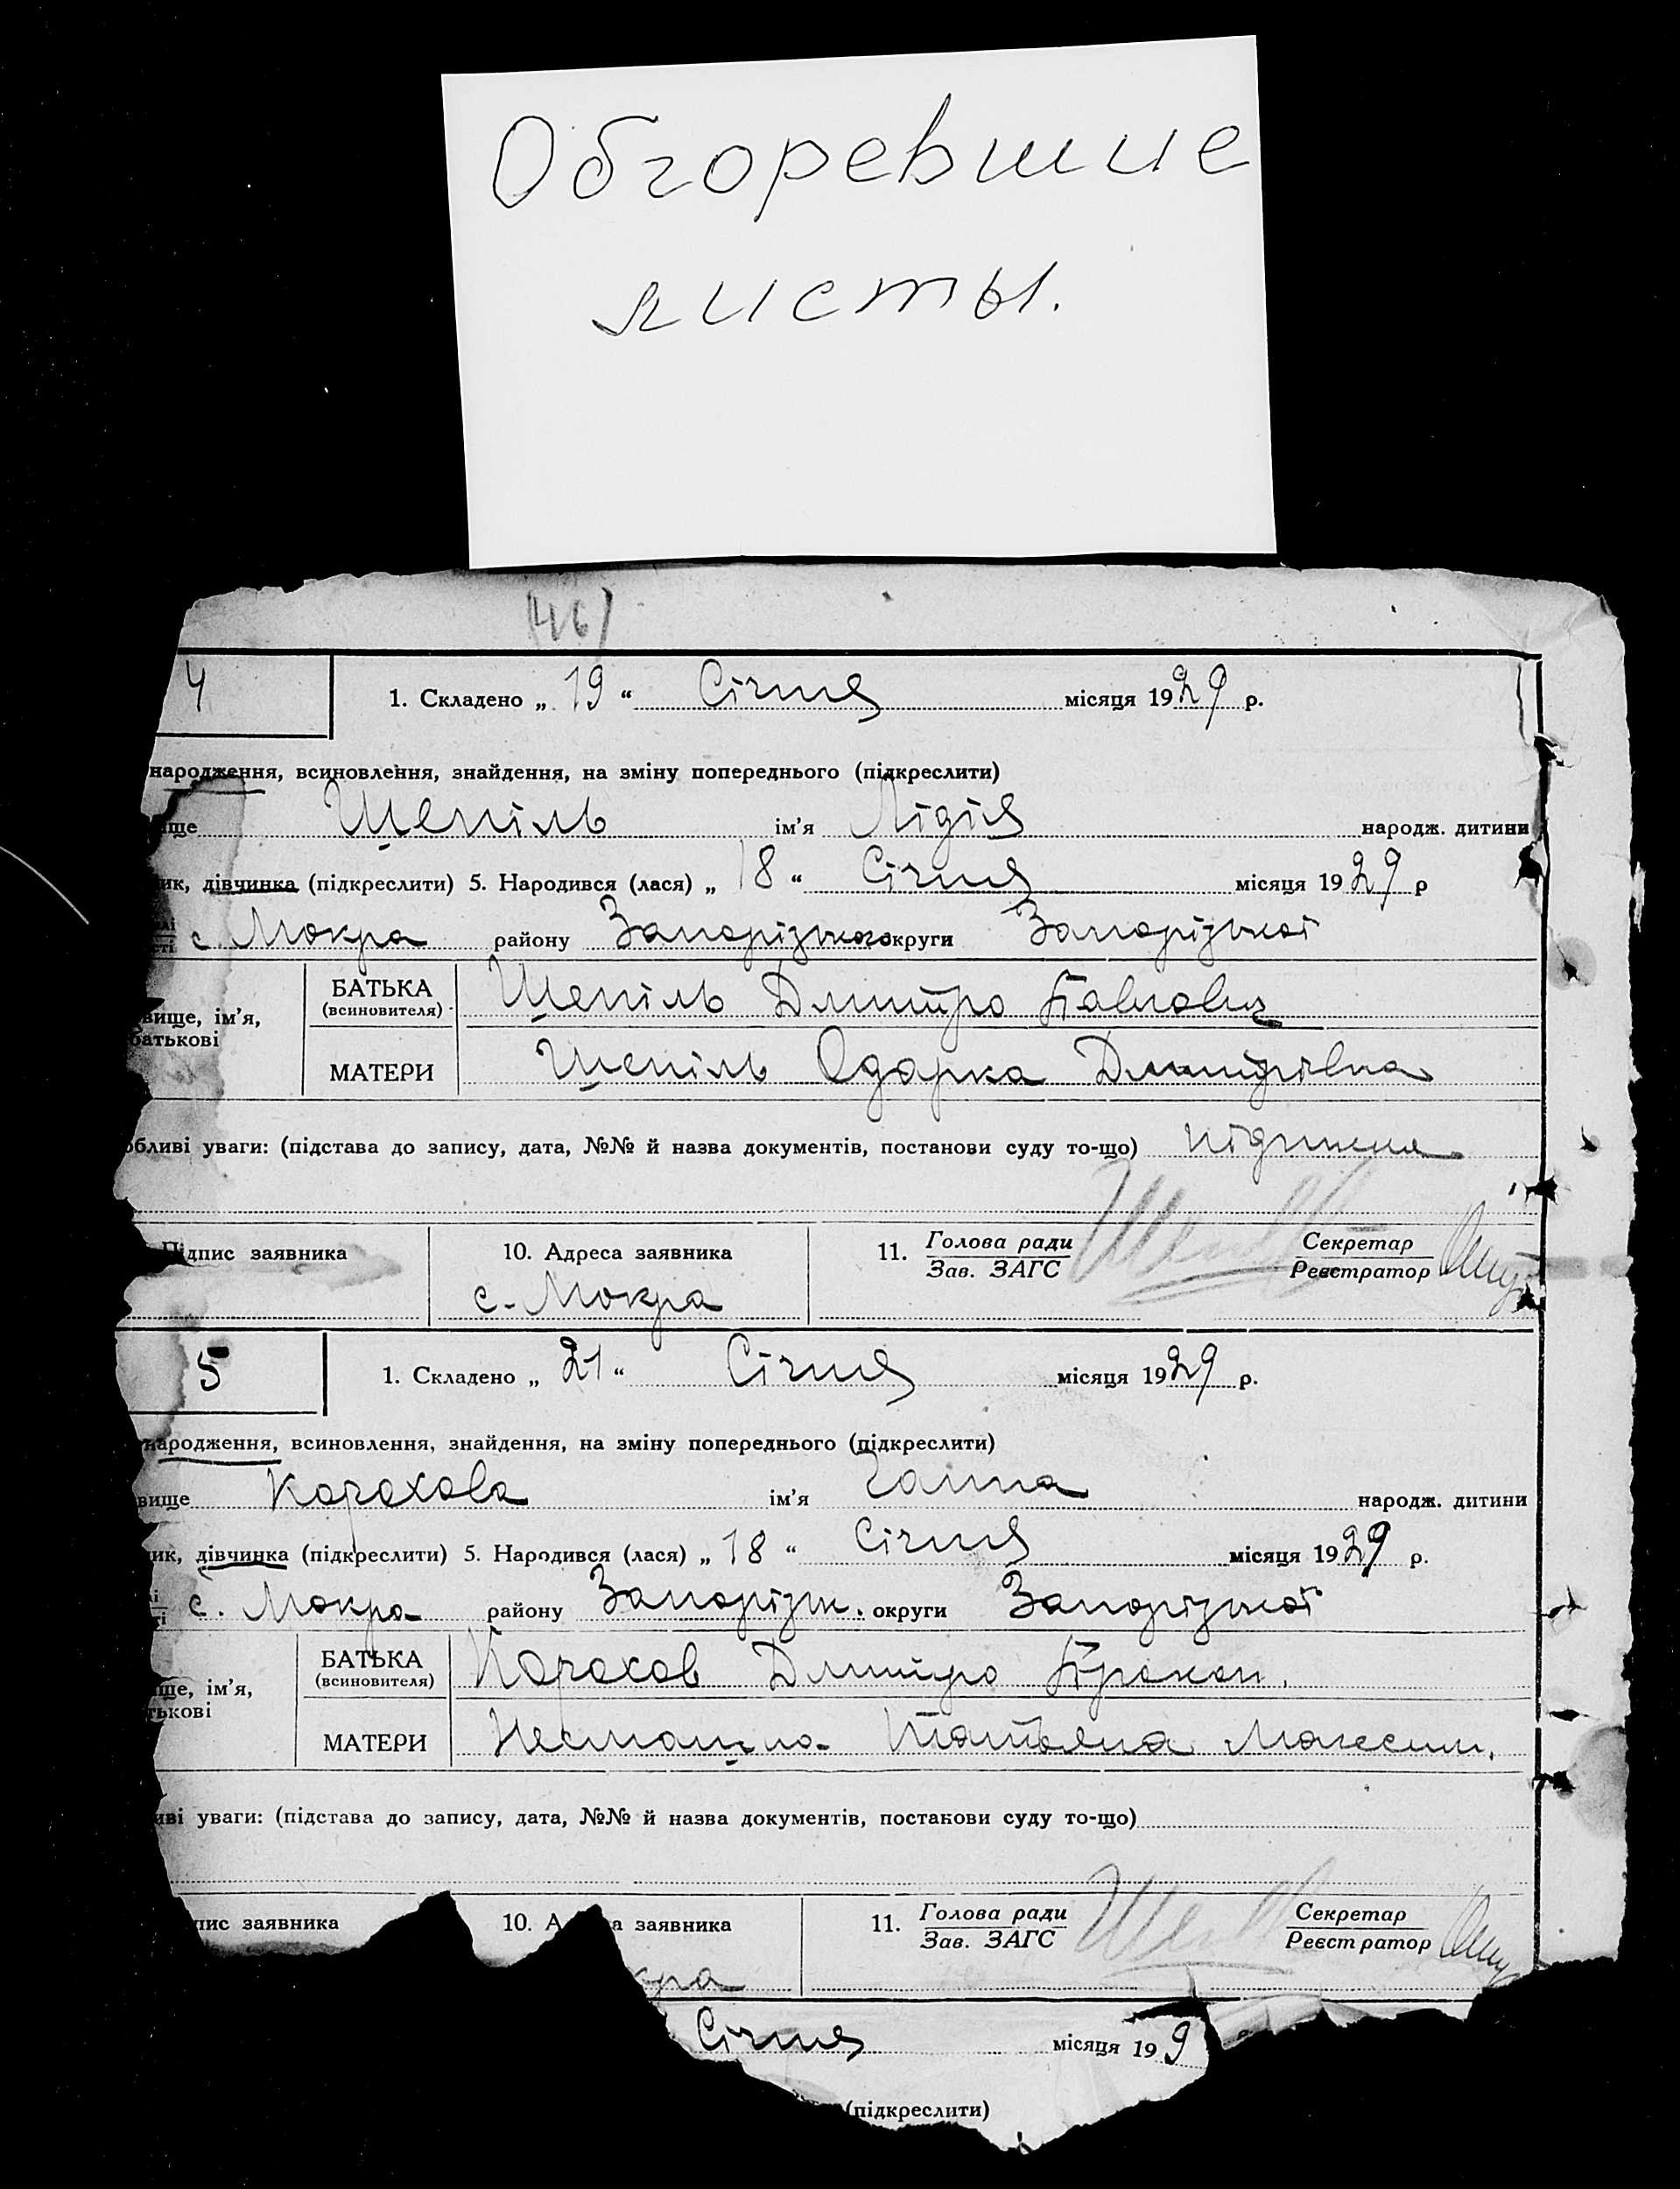 Обгоревшие
листы.
(46)
4
1. Складено „ 19 “ Січня місяця 1929 р.
народження, всиновлення, знайдення, на зміну попереднього (підкреслити)
ище Шепіль ім’я Лідія народж. дитини
ик, дівчинка (підкреслити) 5. Народився (лася) „ 18 “ Січня місяця 1929 р
с. Мокра району Запорізького округи Запорізької
БАТЬКА
(всиновителя)
Шепіль Дмитро Павлович
вище, ім’я,
батькові
МАТЕРИ Шепіль Одарка Дмитрівна
обливі уваги: (підстава до запису, дата, №№ й назва документів, постанови суду то-що)
Підпис заявника 10. Адреса заявника 11. Голова ради Секретар
Зав. ЗАГС Реєстратор
с. Мокра
5
1. Складено „ 21 “ Січня місяця 1929 р.
народження, всиновлення, знайдення, на зміну попереднього (підкреслити)
вище Корохова ім’я Ганна народж. дитини
ик, дівчинка (підкреслити) 5. Народився (лася) „ 18 “ Січня місяця 1929 р.
с. Мокра району Запорізьк. округи Запорізької
БАТЬКА
(всиновителя)
Корохов Дмитро Прокоп.
ще, ім’я,
тькові
МАТЕРИ Татьяна Максим.
иві уваги: (підстава до запису, дата, №№ й назва документів, постанови суду то-що)
пис заявника 10. А а заявника 11. Голова ради Секретар
Зав. ЗАГС Реєстратор
кра
Січня місяця 19 9
(підкреслити)